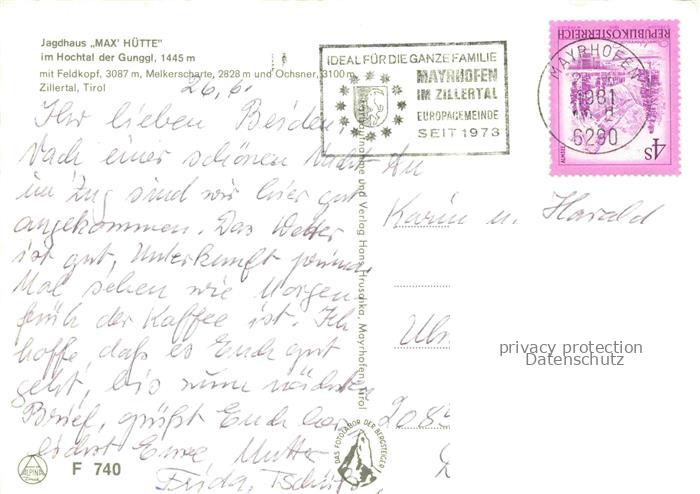 Jagdhaus „MAX' HÜTTE"
im Hochtal der Gunggl, 1445 m
mit Feldkopf, 3087 m, Melkerscharte, 2828 m und Ochsner, 3100 m
Zillertal, Tirol
26.6.
Ihr lieben Beiden,
Nach einer schönen Nacht
im Zug sind wir hier gut
angekommen. Das Wetter
ist gut, Unterkunft prima.
Mal sehen wie Morgen
früh der Kaffee ist. Ich
hoffe, daß es Euch gut
geht, bis zum nächsten
Brief, grüßt Euch her
lichst Eure Mutter
Frida, Tschüß
F 740
ALPINA
und Verlag Hans Hruschka, Mayrhofen, Tirol
DAS FOTOLABOR DER BERGSTEIGER
IDEAL FÜR DIE GANZE FAMILIE
MAYRHOFEN
IM ZILLERTAL
EUROPAGEMEINDE
SEIT 1973
MAYRHOFEN
1981
6290
REPUBLIK ÖSTERREICH
4S
An
Karin u. Harald
privacy protection
Datenschutz